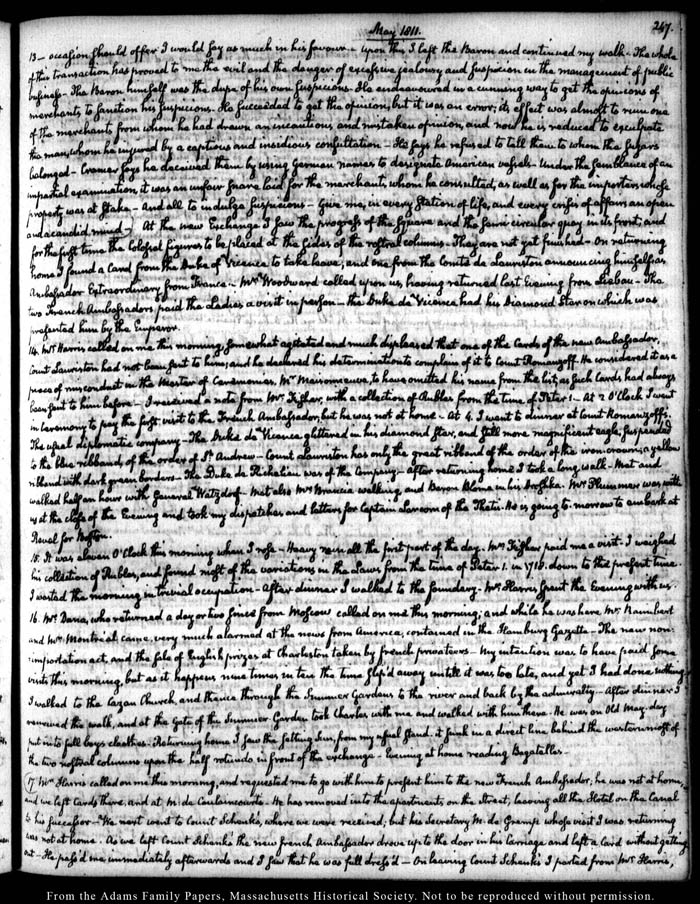 May 1811.
247.
13 - occasion should offer I would say as much in his favour - upon this I left the Baron and continued my walk - The whole
of this transaction has proved to me the evil and the danger of excessive jealousy and suspicion in the management of public
business - The Baron himself was the dupe of his own suspicions - He endeavoured in a cunning way to get the opinions of
merchants to sanction his suspicions. He succeeded to get the opinion, but it was an error; its effect was almost to ruin one
of the merchants from whom he had drawn an incautious and mistaken opinion, and now he is reduced to exculpate
the man, whom he injured by a captious and insidious consultation - He says he refused to tell them to whom the Sugars
belonged - Cramer says he deceived them by using German names to designate American vessels - Under the semblance of an
impartial examination, it was an unfair snare laid for the merchants whom he consulted, as well as for the importers whose
property was at stake - And all to indulge suspicions - Give me, in every station of life, and every crisis of affairs an open
and a candid mind - At the new Exchange I saw the progress of the square and the semi circular quay in its front; and
for the first time the Colossal figures to be placed at the sides of the rostral columns - They are not yet finished - On returning
home I found a Card from the Duke of Vicence to take leave, and one from the Comte de Lauriston announcing himself as
Ambassador Extraordinary from France - Mr Woodward called upon us, having returned last Evening from Lisbon - The
two French Ambassadors paid the Ladies a visit in person - the Duke de Vicence had his Diamond Star on which was
presented him by the Emperor.
14. Mr Harris called on me this morning, somewhat agitated and much displeased that one of the Cards of the new Ambassador,
Count Lauriston had not been sent to him; and he declared his determination to complain of it to Count Romanzoff. He considered it as a
piece of misconduct in the Master of Ceremonies, Mr Maisonneuve, to have omitted his name from the list, as such Cards had always
been sent to him before - I received a note from Mr Fisher, with a collection of Rubles from the time of Peter 1 - At 2 O'Clock I went
in ceremony to pay the first visit to the French Ambassador, but he was not at home - At 4. I went to dinner at Count Romanzoff's.
The usual diplomatic company - The Duke de Vicence glittered in his diamond Star, and still more magnificent eagle, suspended
to the blue ribband, of the order of St Andrew - Count Lauriston has only the great ribband of the order of the iron crown; a yellow
ribband with dark green borders - The Duke de Richelieu was of the Company - After returning home I took a long walk - Met and
walked half an hour with General Watzdorf - Met also Mr Navarro walking, and Baron Blome in his Droshka. Mr Plummer was with
us at the close of the Evening and took my dispatches and letters for Captain Larcom of the Thetis. He is going to-morrow to embark at
Reval for Boston.
15. It was eleven O'Clock this morning when I rose - Heavy rain all the first part of the day. Mr Fisher paid me a visit. I weighed
his collection of Rubles, and found most of the variations in the Laws from the time of Peter 1. in 1718. down to this present time.
I wasted the morning in trivial occupation - After dinner I walked to the foundery. Mr Harris spent the Evening with us.
16. Mr Dana, who returned a day or two since from Moscow called on me this morning; and while he was here Mr Raimbert
and Mr Montréal came, very much alarmed at the news from America, contained in the Hamburg Gazette - The new non-
importation act, and the sale of English prizes at Charleston taken by french privateers - My intention was to have paid some
visits this morning, but as it happens nine times in ten the time slip'd away untill it was too late, and yet I had done nothing
I walked to the Cazan Church, and thence through the Summer Gardens to the river and back by the admiralty - After dinner I
renewed the walk, and at the Gate of the Summer Garden took Charles with me and walked with him there. He was on Old May-day
put into full boys cloathes - Returning home I saw the setting Sun, from my usual stand. it sunk in a direct line behind the westernmost of
the two rostral columns upon the half rotunda in front of the exchange - Evening at home reading Bagatelles.
17 Mr Harris called on me this morning, and requested me to go with him to present him to the new French Ambassador; he was not at home,
and we left Cards there, and at M. de Caulaincourt's. He has removed into the apartments on the Street; leaving all the Hotel on the Canal
to his successor - We next went to Count Schenk's, where we were received; but his Secretary M. de Gremp whose visit I was returning
was not at home. As we left Count Schenk's the new french Ambassador drove up to the door in his carriage and left a Card without getting
out - He pass'd me immediately afterwards and I saw that he was full dress'd - On leaving Count Schenk's I parted from Mr Harris,
From the Adams Family Papers, Massachusetts Historical Society. Not to be reproduced without permission.